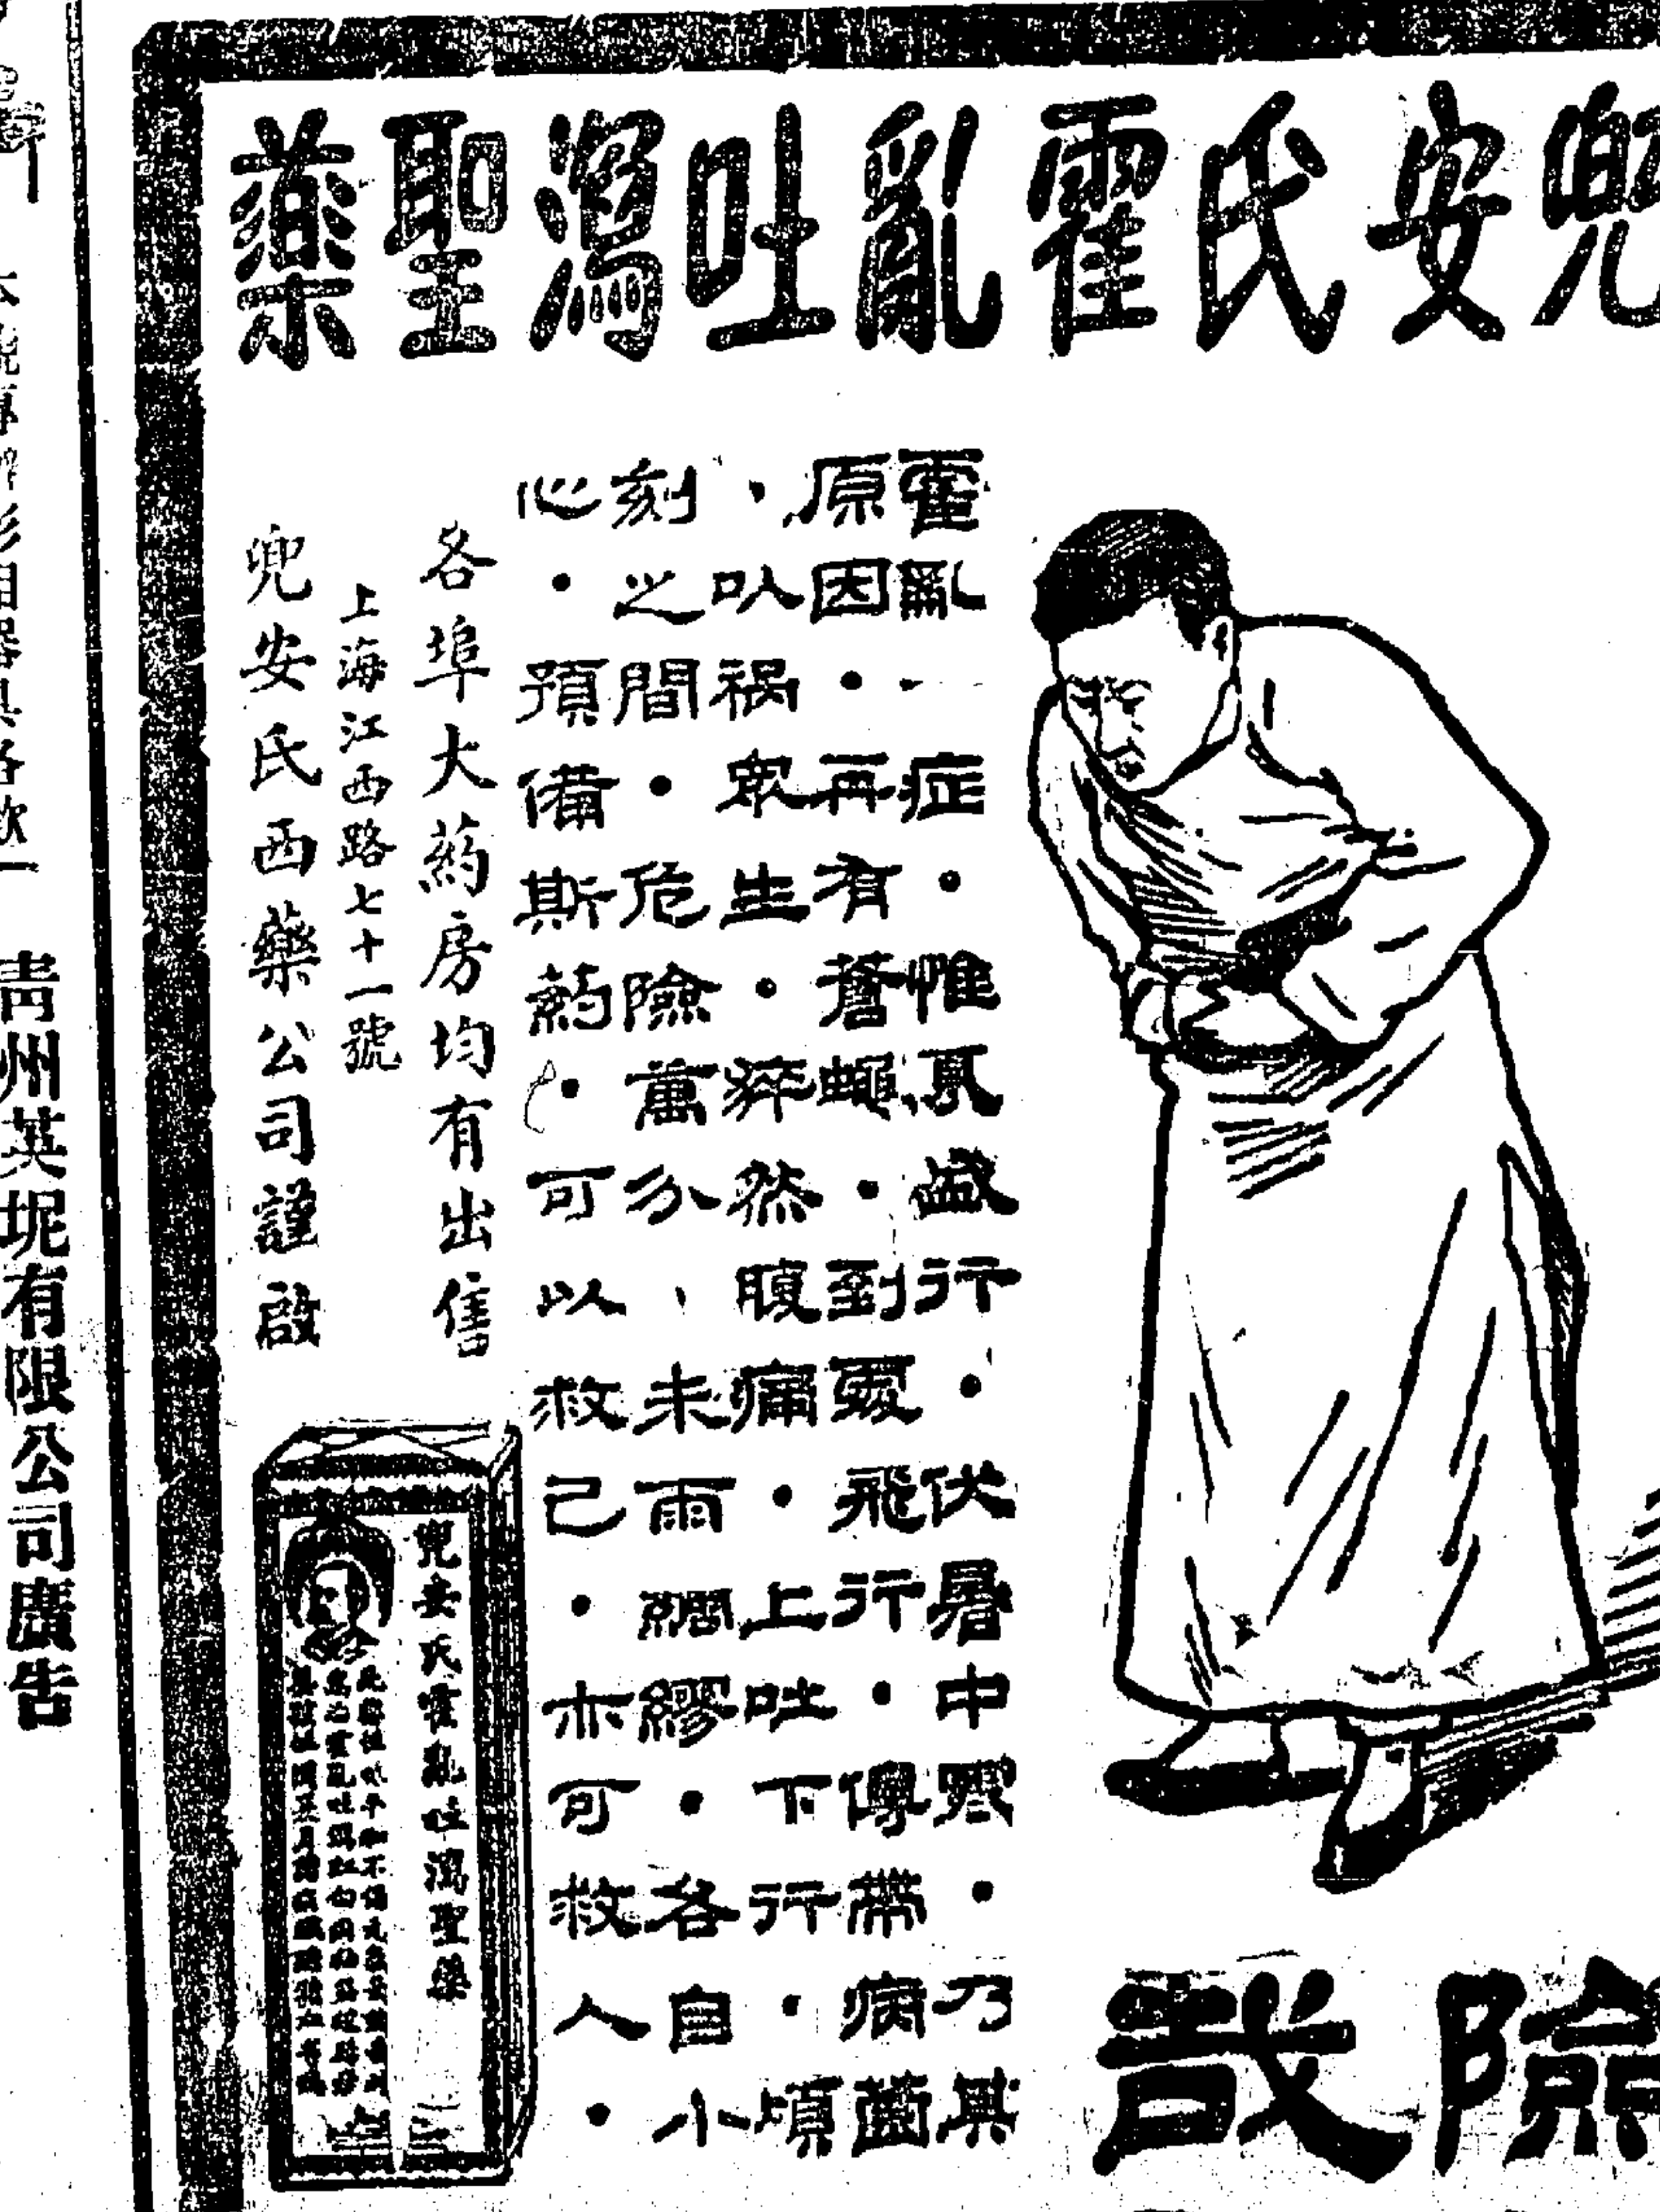 兜安氏霍亂吐瀉聖藥
險哉
霍亂一症・惟夏盛行・伏暑中寒・乃其
原因・再有蒼蠅・到處飛行・傳帶病菌
、以禍衆生・猝然腹痛・上吐下行・頃
刻之間・危險萬分、未雨綢繆・各自小
心・預備斯藥・可以救己・亦可救人・
各埠大藥房均有出售
上海江西路七十一號
兜安氏西藥公司謹啟
兜安氏霍亂吐瀉聖藥
青州英坭有限公司廣告